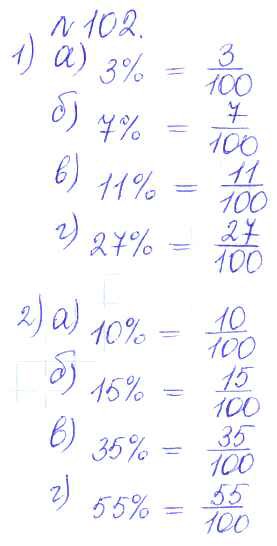 № 102.
1) а) 3% = 3/100
б) 7% = 7/100
в) 11% = 11/100
г) 27% = 27/100
2) а) 10% = 10/100
б) 15% = 15/100
в) 35% = 35/100
г) 55% = 55/100